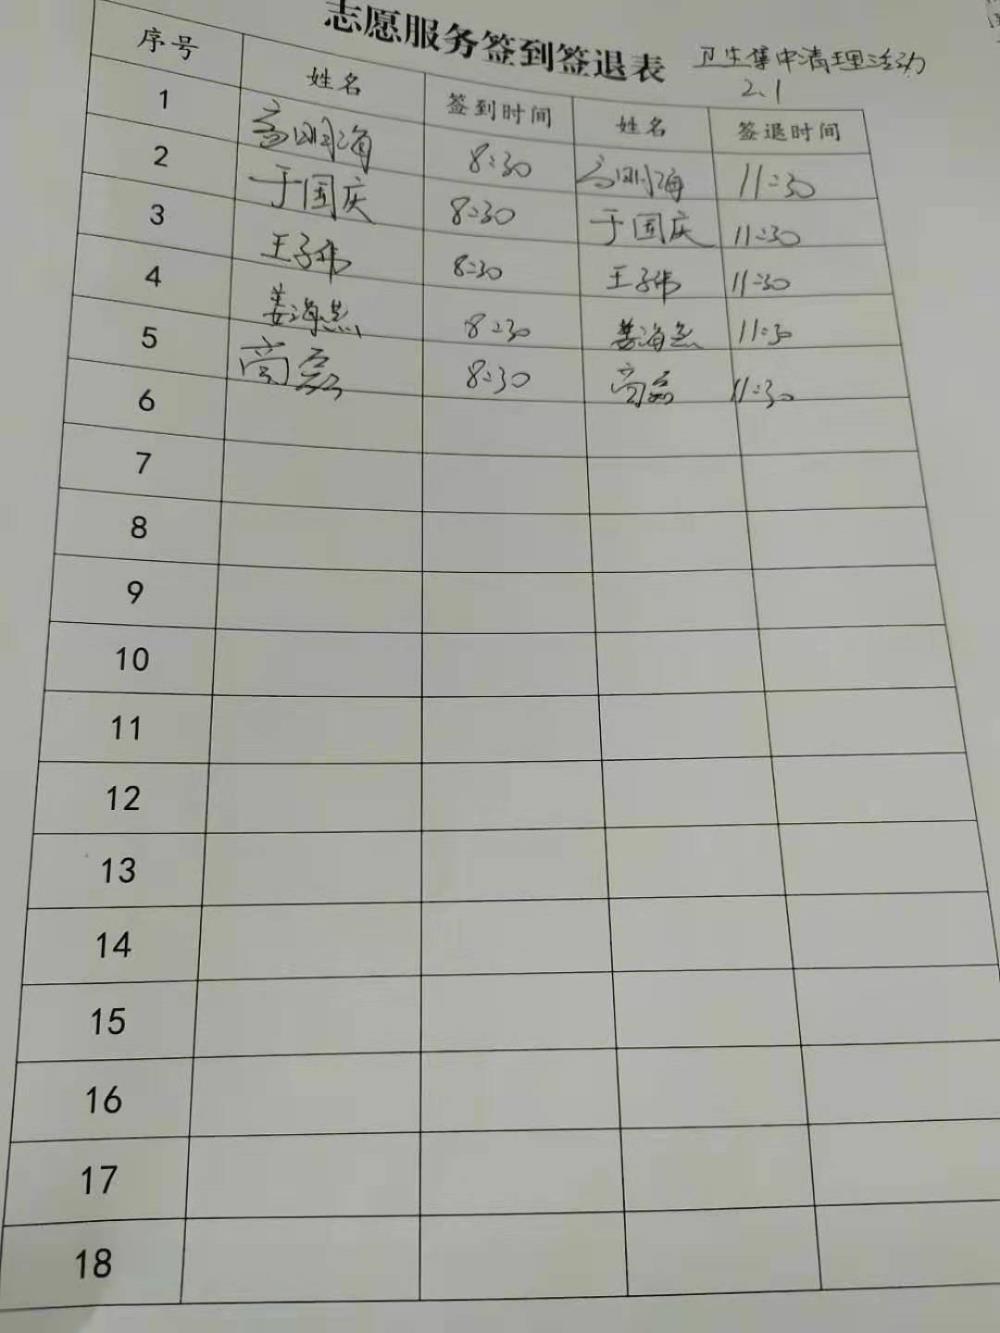 志愿服务签到签退表 卫生集中清理活动
2.1
序号 姓名 签到时间 姓名 签退时间
1 高明海 8:30 高明海 11:30
2 于国庆 8:30 于国庆 11:30
3 王子伟 8:30 王子伟 11:30
4 姜海 8:30 姜海 11:30
5 高磊 8:30 高磊 11:30
6
7
8
9
10
11
12
13
14
15
16
17
18